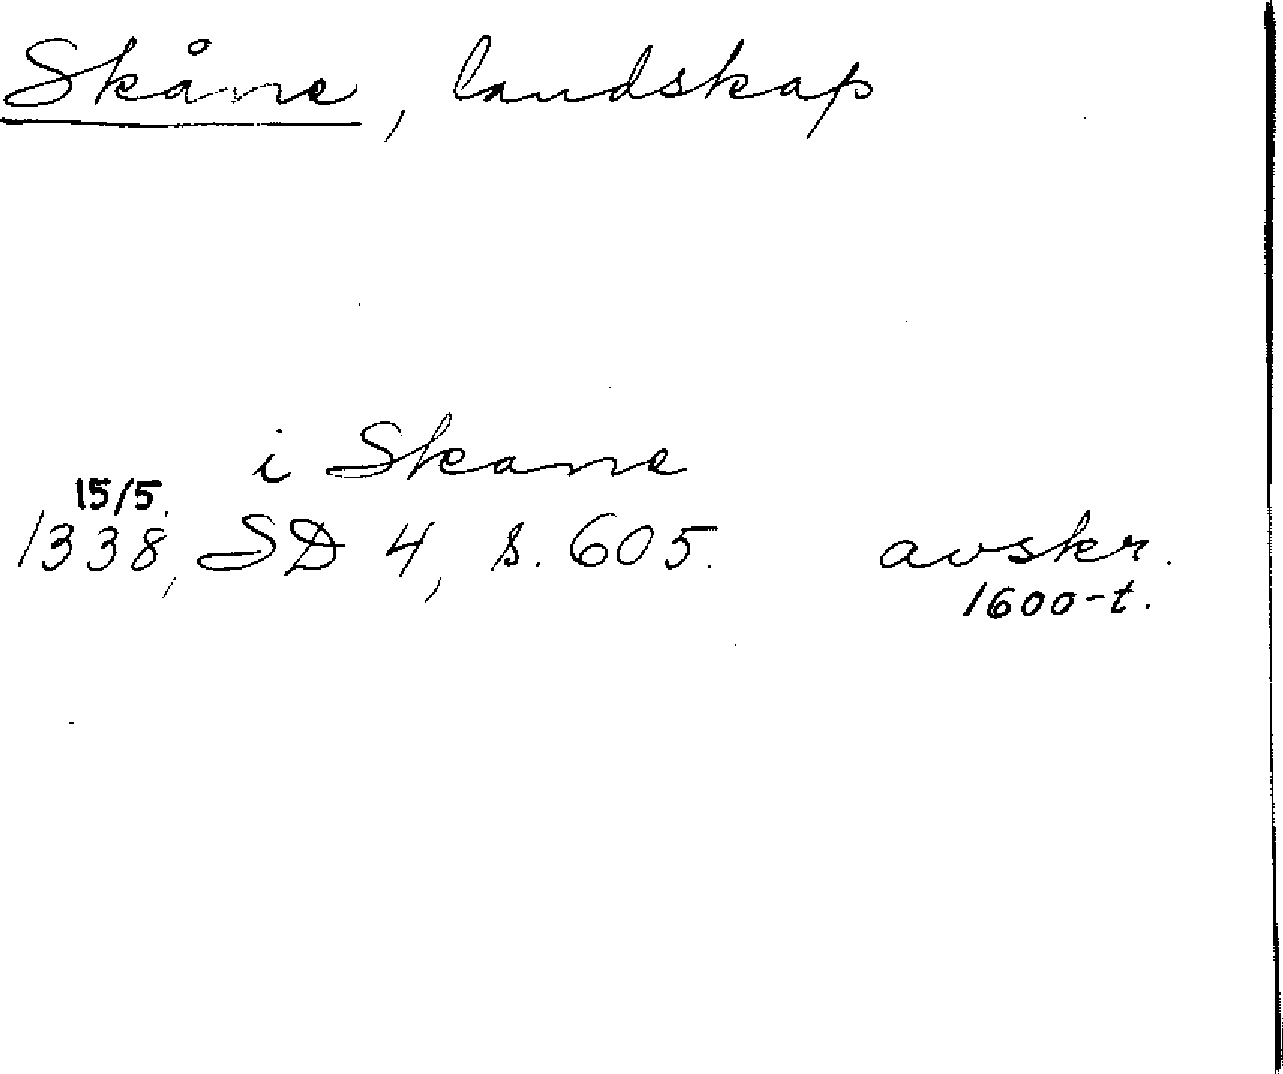 Skåne, landskap
i Skane
15/5.
1338, SD 4, s. 605. avskr.
1600-t.